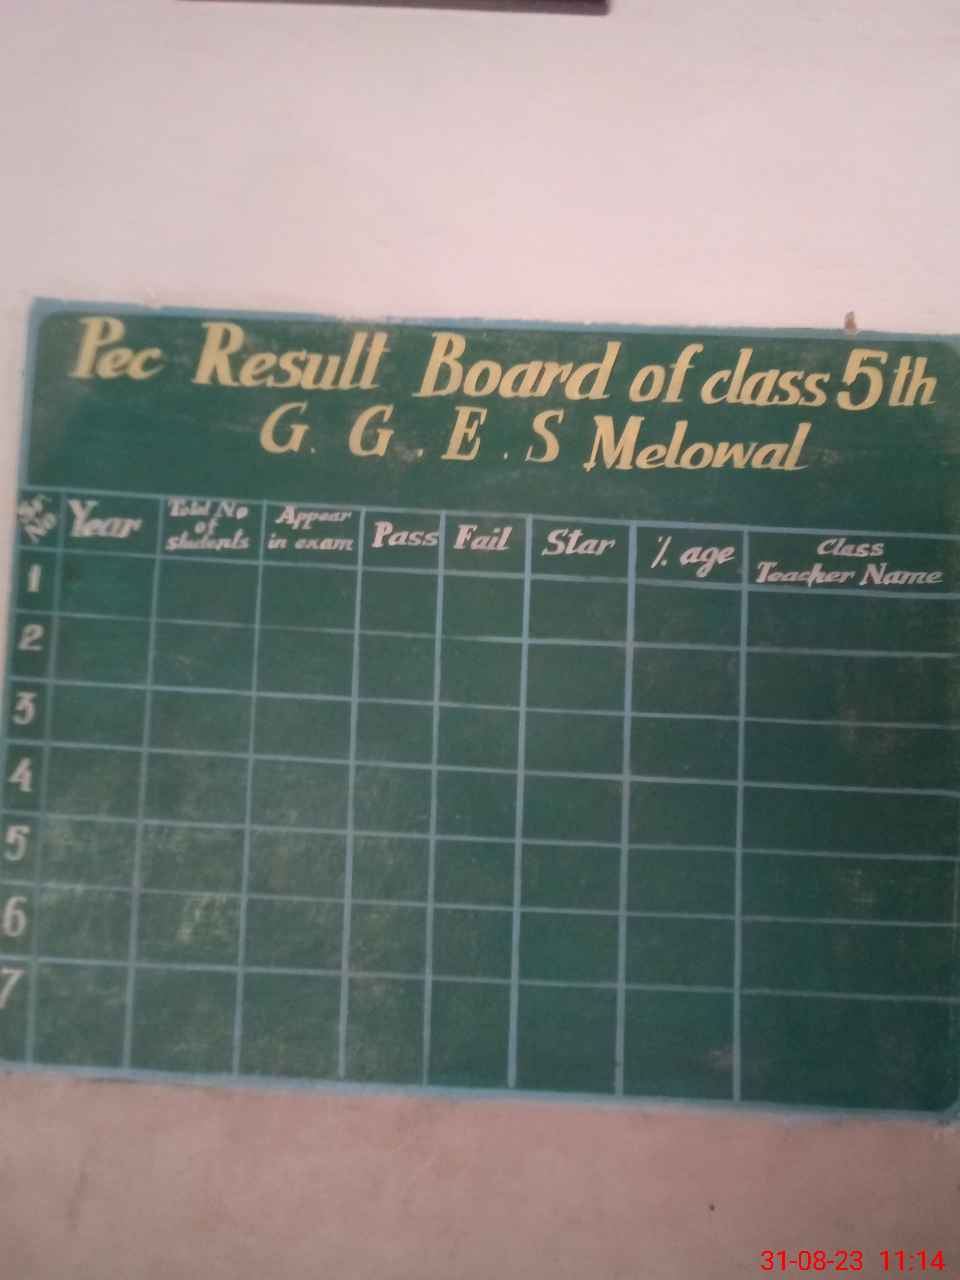 Pec Result Board of class 5th
G. G. E. S Melowal
Sr. No Year Total No of students Appear in exam Pass Fail Star % age Class Teacher Name
1
2
3
4
5
6
7
31-08-23 11:14